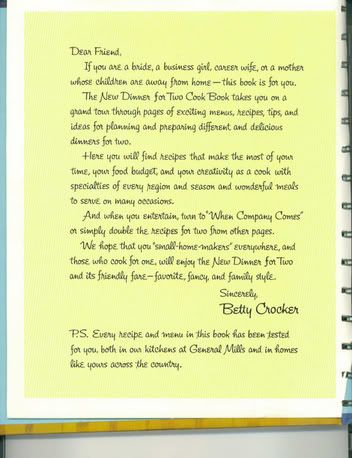 Dear Friend,
If you are a bride, a business girl, career wife, or a mother
whose children are away from home—this book is for you.
The New Dinner for Two Cook Book takes you on a
grand tour through pages of exciting menus, recipes, tips, and
ideas for planning and preparing different and delicious
dinners for two.
Here you will find recipes that make the most of your
time, your food budget, and your creativity as a cook with
specialties of every region and season and wonderful meals
to serve on many occasions.
And when you entertain, turn to "When Company Comes"
or simply double the recipes for two from other pages.
We hope that you "small-home-makers" everywhere, and
those who cook for one, will enjoy the New Dinner for Two
and its friendly fare—favorite, fancy, and family style.
Sincerely,
Betty Crocker
P.S. Every recipe and menu in this book has been tested
for you, both in our kitchens at General Mills and in homes
like yours across the country.